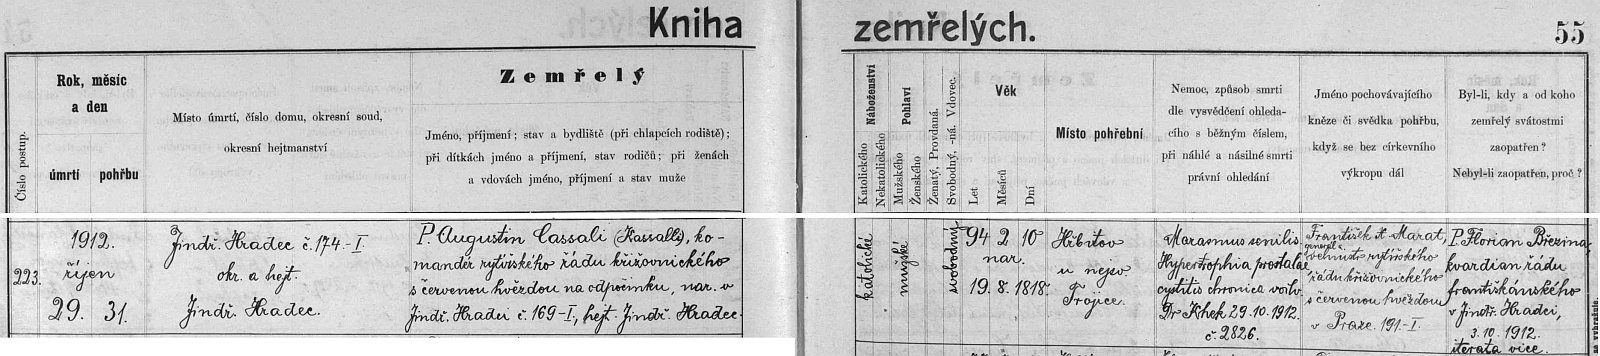 Kniha zemřelých. 55
Číslo postup.
Rok, měsíc
a den
úmrtí pohřbu
Místo úmrtí, číslo domu, okresní soud,
okresní hejtmanství
Zemřelý
Jméno, příjmení; stav a bydliště (při chlapcích rodiště);
při dítkách jméno a příjmení, stav rodičů; při ženách
a vdovách jméno, příjmení a stav muže
Náboženství
Katolického
Nekatolického
Pohlaví
Mužského
Ženského
Ženatý, Provdaná.
Svobodný, -ná. Vdovec.
Věk
Let
Měsíců
Dní
Místo pohřební
Nemoc, způsob smrti
dle vysvědčení ohleda-
cího s běžným číslem,
při náhlé a násilné smrti
právní ohledání
Jméno pochovávajícího
kněze či svědka pohřbu,
když se bez církevního
výkropu dál
Byl-li, kdy a od koho
zemřelý svátostmi
zaopatřen?
Nebyl-li zaopatřen, proč?
223.
1912.
říjen
29. 31.
Jindř. Hradec č. 174.-I.
okr. a hejt.
Jindř. Hradec.
P. Augustin Cassali (Kassalli), ko-
mandér rytířského řádu křižovnického
s červenou hvězdou na odpočinku, nar. v
Jindř. Hradci č. 169-I, hejt. Jindř. Hradec.
katolické
mužské
svobodný
94 2 10
nar.
19. 8. 1818.
Hřbitov
u nejsv
Trojice.
Marasmus senilis.
Hypertrophia prostatae
cystitis chronica
Dr Khek 29. 10. 1912.
č. 2826.
František Marat,
generál a
velmistr rytířského
řádu křižovnického
s červenou hvězdou
v Praze. 191-I.
P. Florian Březina,
kvardian řádu
františkánského
v Jindř. Hradci,
3. 10. 1912.
iterata vice.